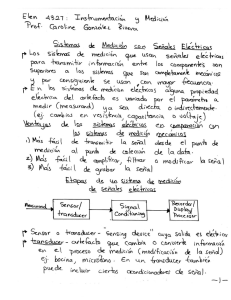 Elen 4327: Instrumentación y Medición
Prof. Caroline González Rivera
Sistemas de Medición con Señales Eléctricas
* Los sistemas de medición que usan señales eléctricas
para transmitir información entre los componentes son
superiores a los sistemas que son completamente mecánicos
y por consiguiente se usan con mayor frecuencia.
* En los sistemas de medición eléctricos alguna propiedad
eléctrica del artefacto es variada por el parámetro a
medir (measurand) ya sea directa o indirectamente
(ej. cambios en resistencia, capacitancia o voltaje)
Ventajas de los sistemas eléctricos en comparación con
los sistemas de medición mecánicos
1) Más fácil de transmitir la señal desde el punto de
medición al punto de colección de la data.
2) Más fácil de amplificar, filtrar o modificar la señal
3) Más fácil de grabar la señal
Etapas de un sistema de medición
de señales eléctricas
Measurand
Sensor/
transducer
Signal
Conditioning
Recorder/
Display/
Processor
* Sensor o transducer- "Sensing device" cuya salida es eléctrica
* transducer- artefacto que cambia o convierte información
en el proceso de medición (modificación de la señal)
ej: bocina, micrófono. En un transducer también
puede incluir ciertos acondicionadores de señal.
-1-